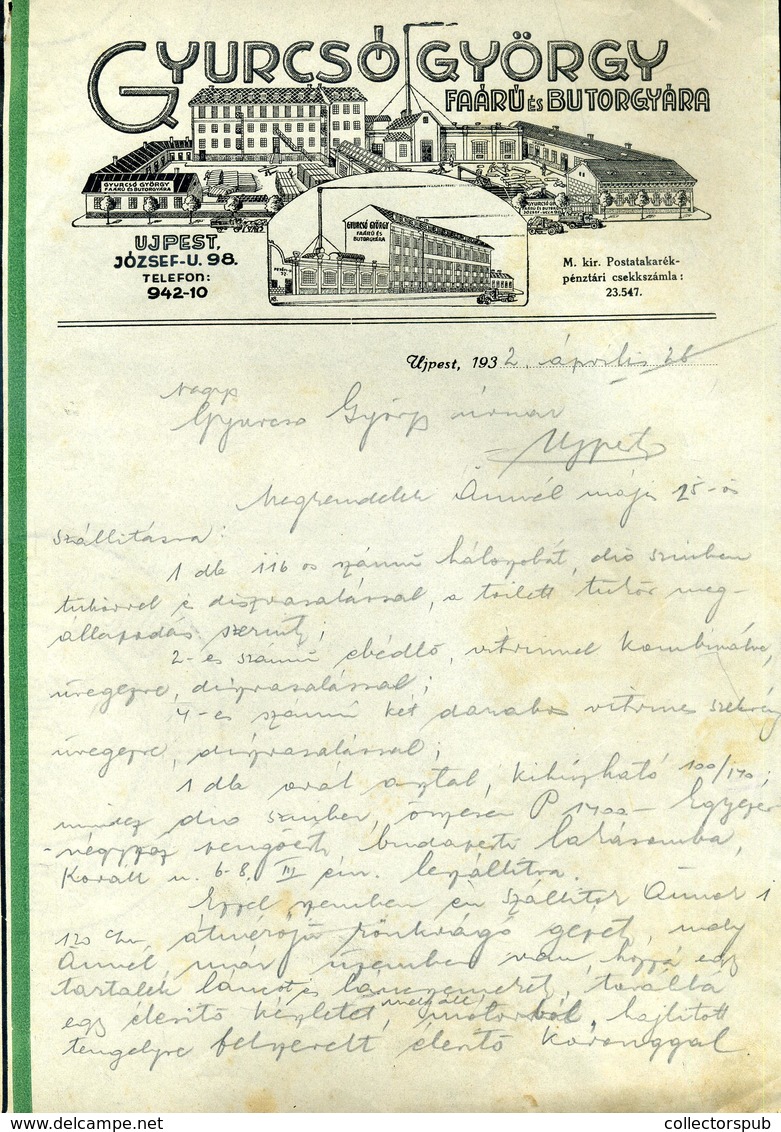 GYURCSÓ GYÖRGY
FAÁRÚ ÉS BUTORGYÁRA
GYURCSÓ GYÖRGY
FAÁRÚ ÉS BUTORGYÁRA
GYURCSÓ GYÖRGY
FAÁRÚ ÉS
BUTORGYÁRA
UJPEST,
JÓZSEF-U. 98.
TELEFON:
942-10
M. kir. Postatakarék-
pénztári csekkszámla:
23.547.
Ujpest, 1932. április 26
Nagys
Gyurcsó György urnak
Ujpest
Megrendelek Önnél május 15-ös
szállitásra:
1 db 116 os számú hálószobát, dió szinben
tükörrel és díszvasalással, a toilett tükör meg-
állapodás szerint;
2-es számú ebédlő, vitrinnel kombinálva,
üvegezve, díszvasalással;
4-es számú két darabos vitrines szekrény
üvegezve, díszvasalással;
1 db ovál asztal, kihúzható 100/170;
mindez dió szinben, összesen P 1400- Egyezer-
-négyszáz pengőért, budapesti lakásomba,
u. 6-8. III em. leszállítva.
Ezzel szemben én szállitok Önnek 1
120 cm. átmérőjű rönkvágó gépet, mely
Önnél már üzemben van, hozzá egy
tartalék láncot és lancszemeket, továbbá
egy élesítő készletet, mely áll: motorból, hajlított
tengelyre felszerelt élesítő koronggal
collectorspub